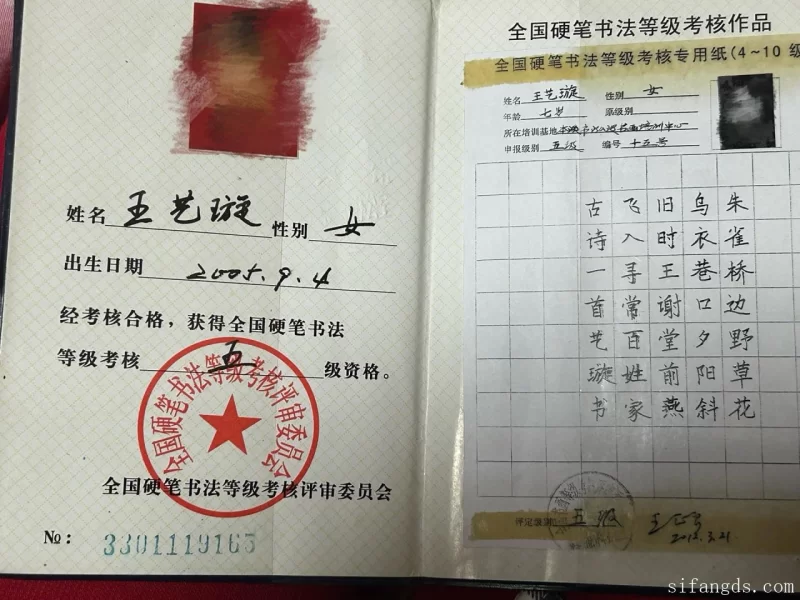 姓名 王艺璇 性别 女
出生日期 2005.9.4
经考核合格，获得全国硬笔书法
等级考核 五 级资格。
全国硬笔书法等级考核评审委员会
全国硬笔书法等级考核评审委员会
No: 3301119163
全国硬笔书法等级考核作品
全国硬笔书法等级考核专用纸(4~10级
姓名 王艺璇 性别 女
年龄 七岁 原级别
所在培训基地
申报级别 五级 编号 十五号
朱雀桥边野草花
乌衣巷口夕阳斜
旧时王谢堂前燕
飞入寻常百姓家
古诗一首艺璇书
评定级别: 五级
2012.3.21
sifangds.com